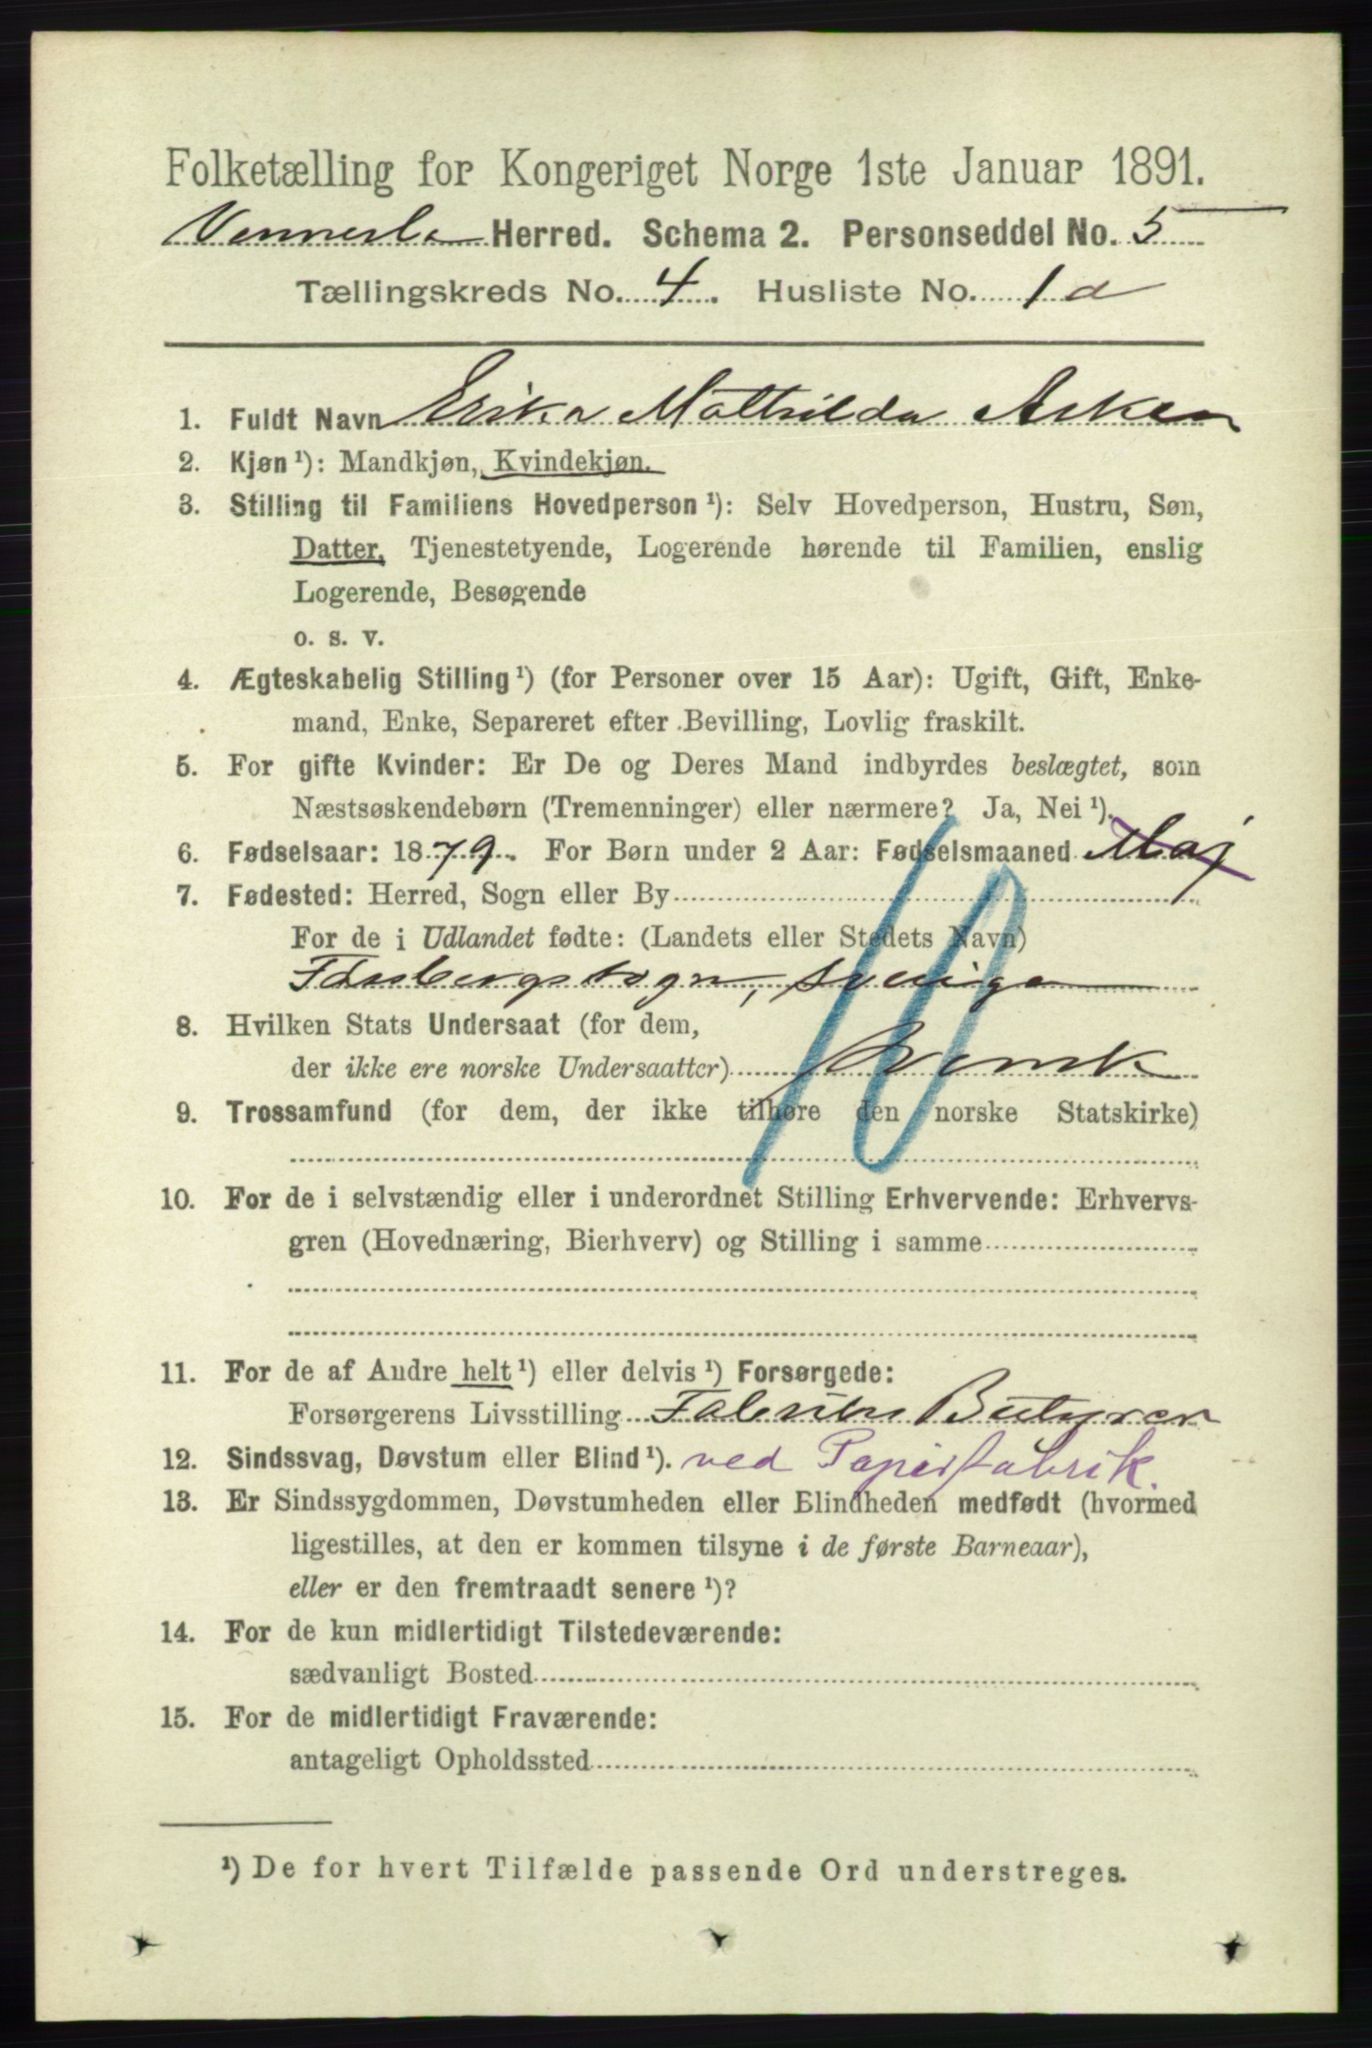 Folketælling for Kongeriget Norge 1ste Januar 1891.
Vennesla Herred. Schema 2. Personseddel No. 5
Tællingskreds No. 4. Husliste No. 1a
1. Fuldt Navn Erika Mathilda Asken
2. Kjøn¹): Mandkjøn, Kvindekjøn.
3. Stilling til Familiens Hovedperson¹): Selv Hovedperson, Hustru, Søn,
Datter, Tjenestetyende, Logerende hørende til Familien, enslig
Logerende, Besøgende
o. s. v.
4. Ægteskabelig Stilling¹) (for Personer over 15 Aar): Ugift, Gift, Enke-
mand, Enke, Separeret efter Bevilling, Lovlig fraskilt.
5. For gifte Kvinder: Er De og Deres Mand indbyrdes beslægtet, som
Næstsøskendebørn (Tremenninger) eller nærmere? Ja, Nei¹).
6. Fødselsaar: 1879. For Børn under 2 Aar: Fødselsmaaned Maj
7. Fødested: Herred, Sogn eller By
For de i Udlandet fødte: (Landets eller Stedets Navn)
sogn, Sverige
10
8. Hvilken Stats Undersaat (for dem,
der ikke ere norske Undersaatter) svensk
9. Trossamfund (for dem, der ikke tilhøre den norske Statskirke)
10. For de i selvstændig eller i underordnet Stilling Erhvervende: Erhvervs-
gren (Hovednæring, Bierhverv) og Stilling i samme
11. For de af Andre helt¹) eller delvis¹) Forsørgede:
Forsørgerens Livsstilling Fabriks Bestyrer
12. Sindssvag, Døvstum eller Blind¹). ved Papirfabrik.
13. Er Sindssygdommen, Døvstumheden eller Blindheden medfødt (hvormed
ligestilles, at den er kommen tilsyne i de første Barneaar),
eller er den fremtraadt senere¹)?
14. For de kun midlertidigt Tilstedeværende:
sædvanligt Bosted
15. For de midlertidigt Fraværende:
antageligt Opholdssted
¹) De for hvert Tilfælde passende Ord understreges.